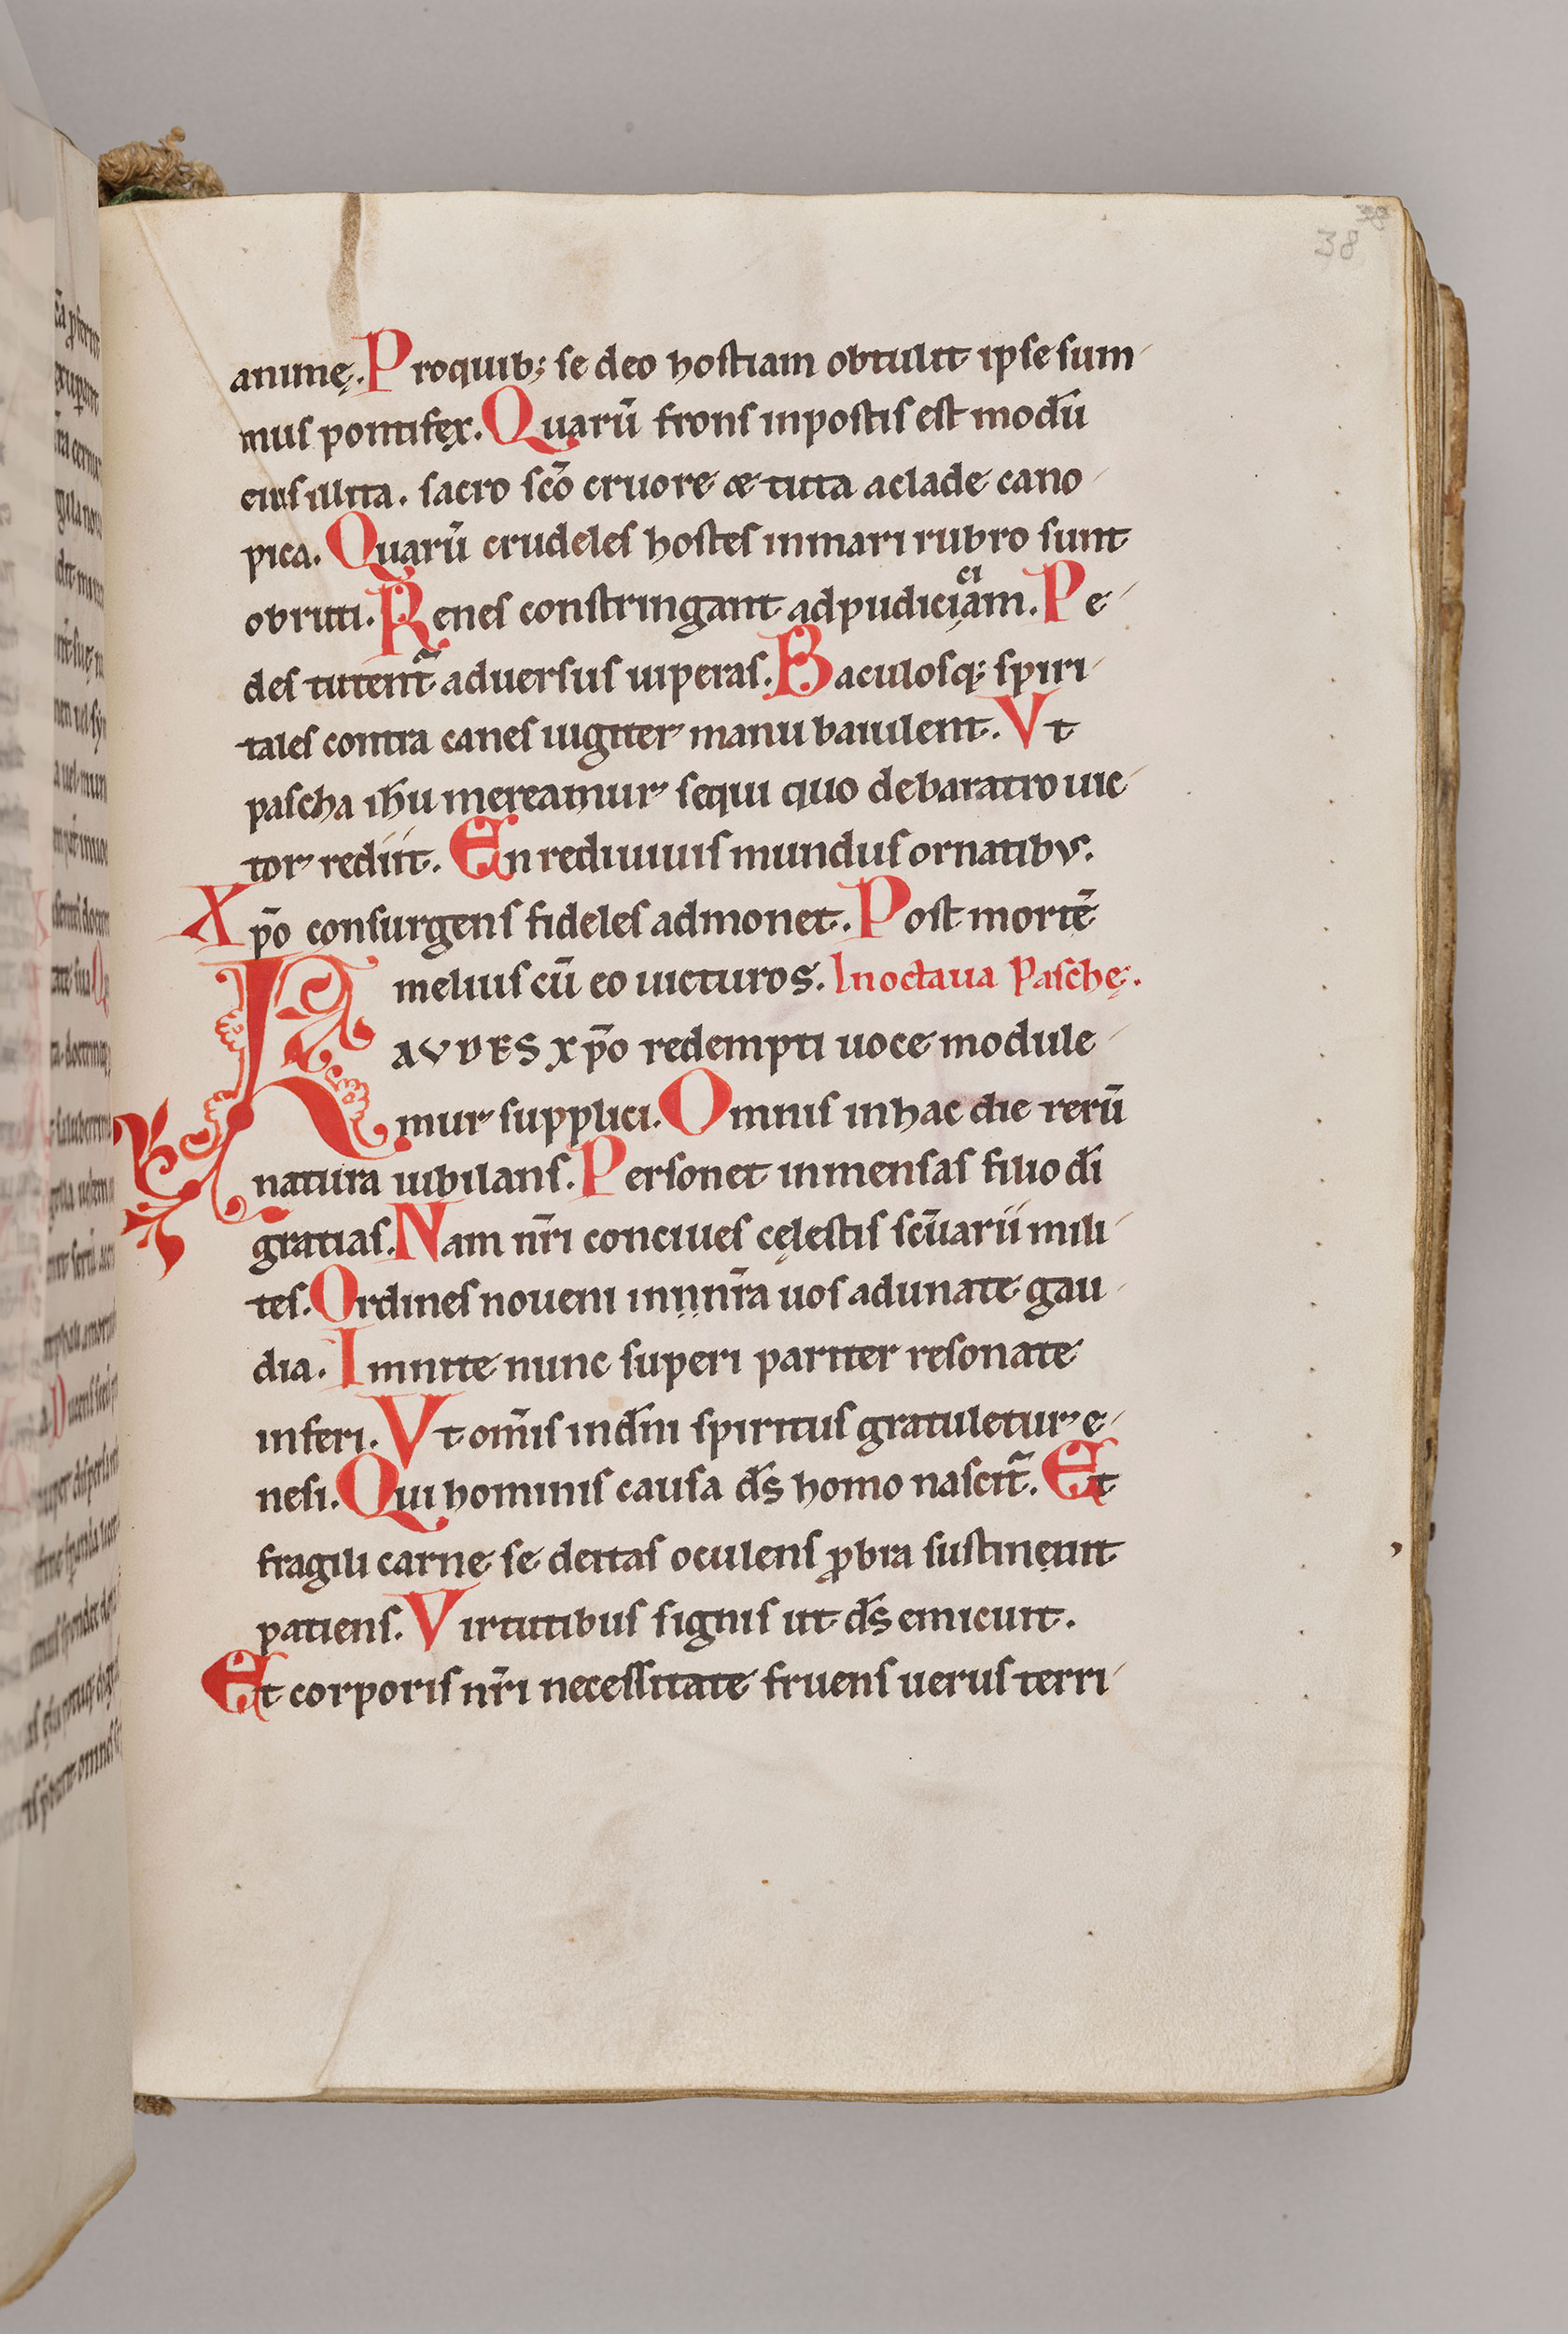 38
38
animę. Proquib; se deo hostiam obtulit ipse sum
mus pontifex. Quarū frons inpostis est modū
eius illita. sacro scō cruore ę tuta aclade cano
pica. Quarū crudeles hostes inmari rubro sunt
obruti. Renes constringant adpudiciam. Pe
ci
des tutent̄ aduersus uiperas. Baculosq; spiri
tales contra canes iugiter manu baiulent. Vt
pascha ihu mereamur sequi quo debaratro uic
tor rediit. En rediuiuis mundus ornatibus.
Xpō consurgens fideles admonet. Post mortē
melius cū eo uicturos. In octaua Paschę.
LAVDES xpō redempti uoce module
mur supplici. Omnis inhac die rerū
natura iubilans. Personet inmensas filio dī
gratias. Nam nr̄i conciues cęlestis scūarii mili
tes. Ordines noueni innr̄a uos adunate gau
dia. Imnite nunc superi pariter resonate
inferi. Vt om̄is indn̄i spiritus gratuletur e
nesi. Qui hominis causa ds̄ homo nascit̄. Et
fragili carne se deitas oculens ꝓbra sustinęnt
patiens. Virtutibus signis ut ds̄ emicuit.
Et corporis nr̄i necessitate fruens uerus terri